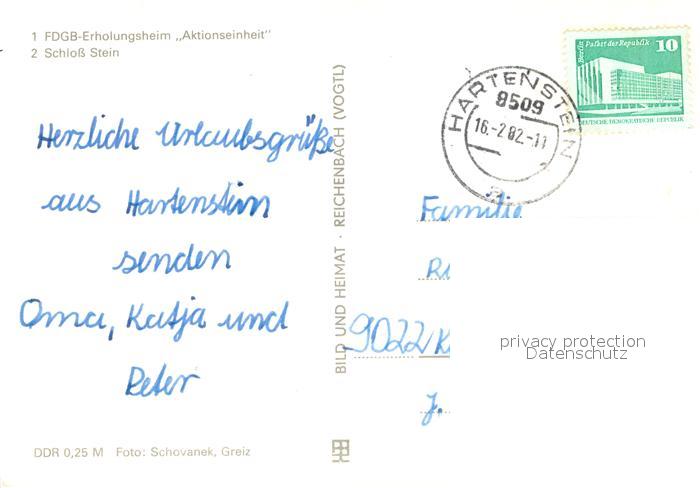 1 FDGB-Erholungsheim „Aktionseinheit"
2 Schloß Stein
Berlin Palast der Republik 10
DEUTSCHE DEMOKRATISCHE REPUBLIK
HARTENSTEIN
9509
16.-2.82.-11
a
Herzliche Urlaubsgrüße
aus Hartenstein
senden
Oma, Katja und
Peter
BILD UND HEIMAT · REICHENBACH (VOGTL)
Familie
9022 K
J.
privacy protection
Datenschutz
DDR 0,25 M Foto: Schovanek, Greiz